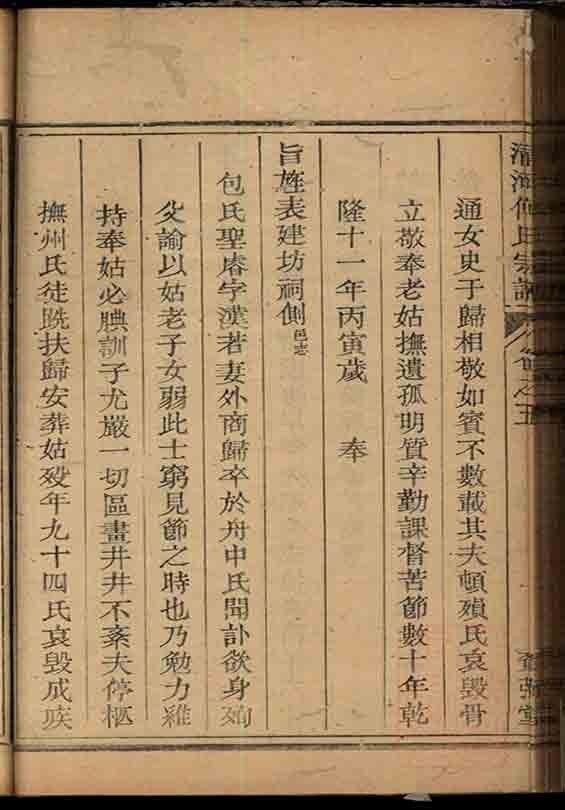 清河
氏宗譜
卷之五
通女史于歸相敬如賓不數載其夫頓殞氏哀毀骨
立敬奉老姑撫遺孤明質辛勤課督苦節數十年乾
隆十一年丙寅歲　奉
旨旌表建坊祠側邑志
包氏聖睿字漢若妻外商歸卒於舟中氏聞訃欲身殉
父諭以姑老子女弱此士窮見節之時也乃勉力維
持奉姑必腆訓子尤嚴一切區畫井井不紊夫停柩
撫州氏徒跣扶歸安葬姑歿年九十四氏哀毀成疾